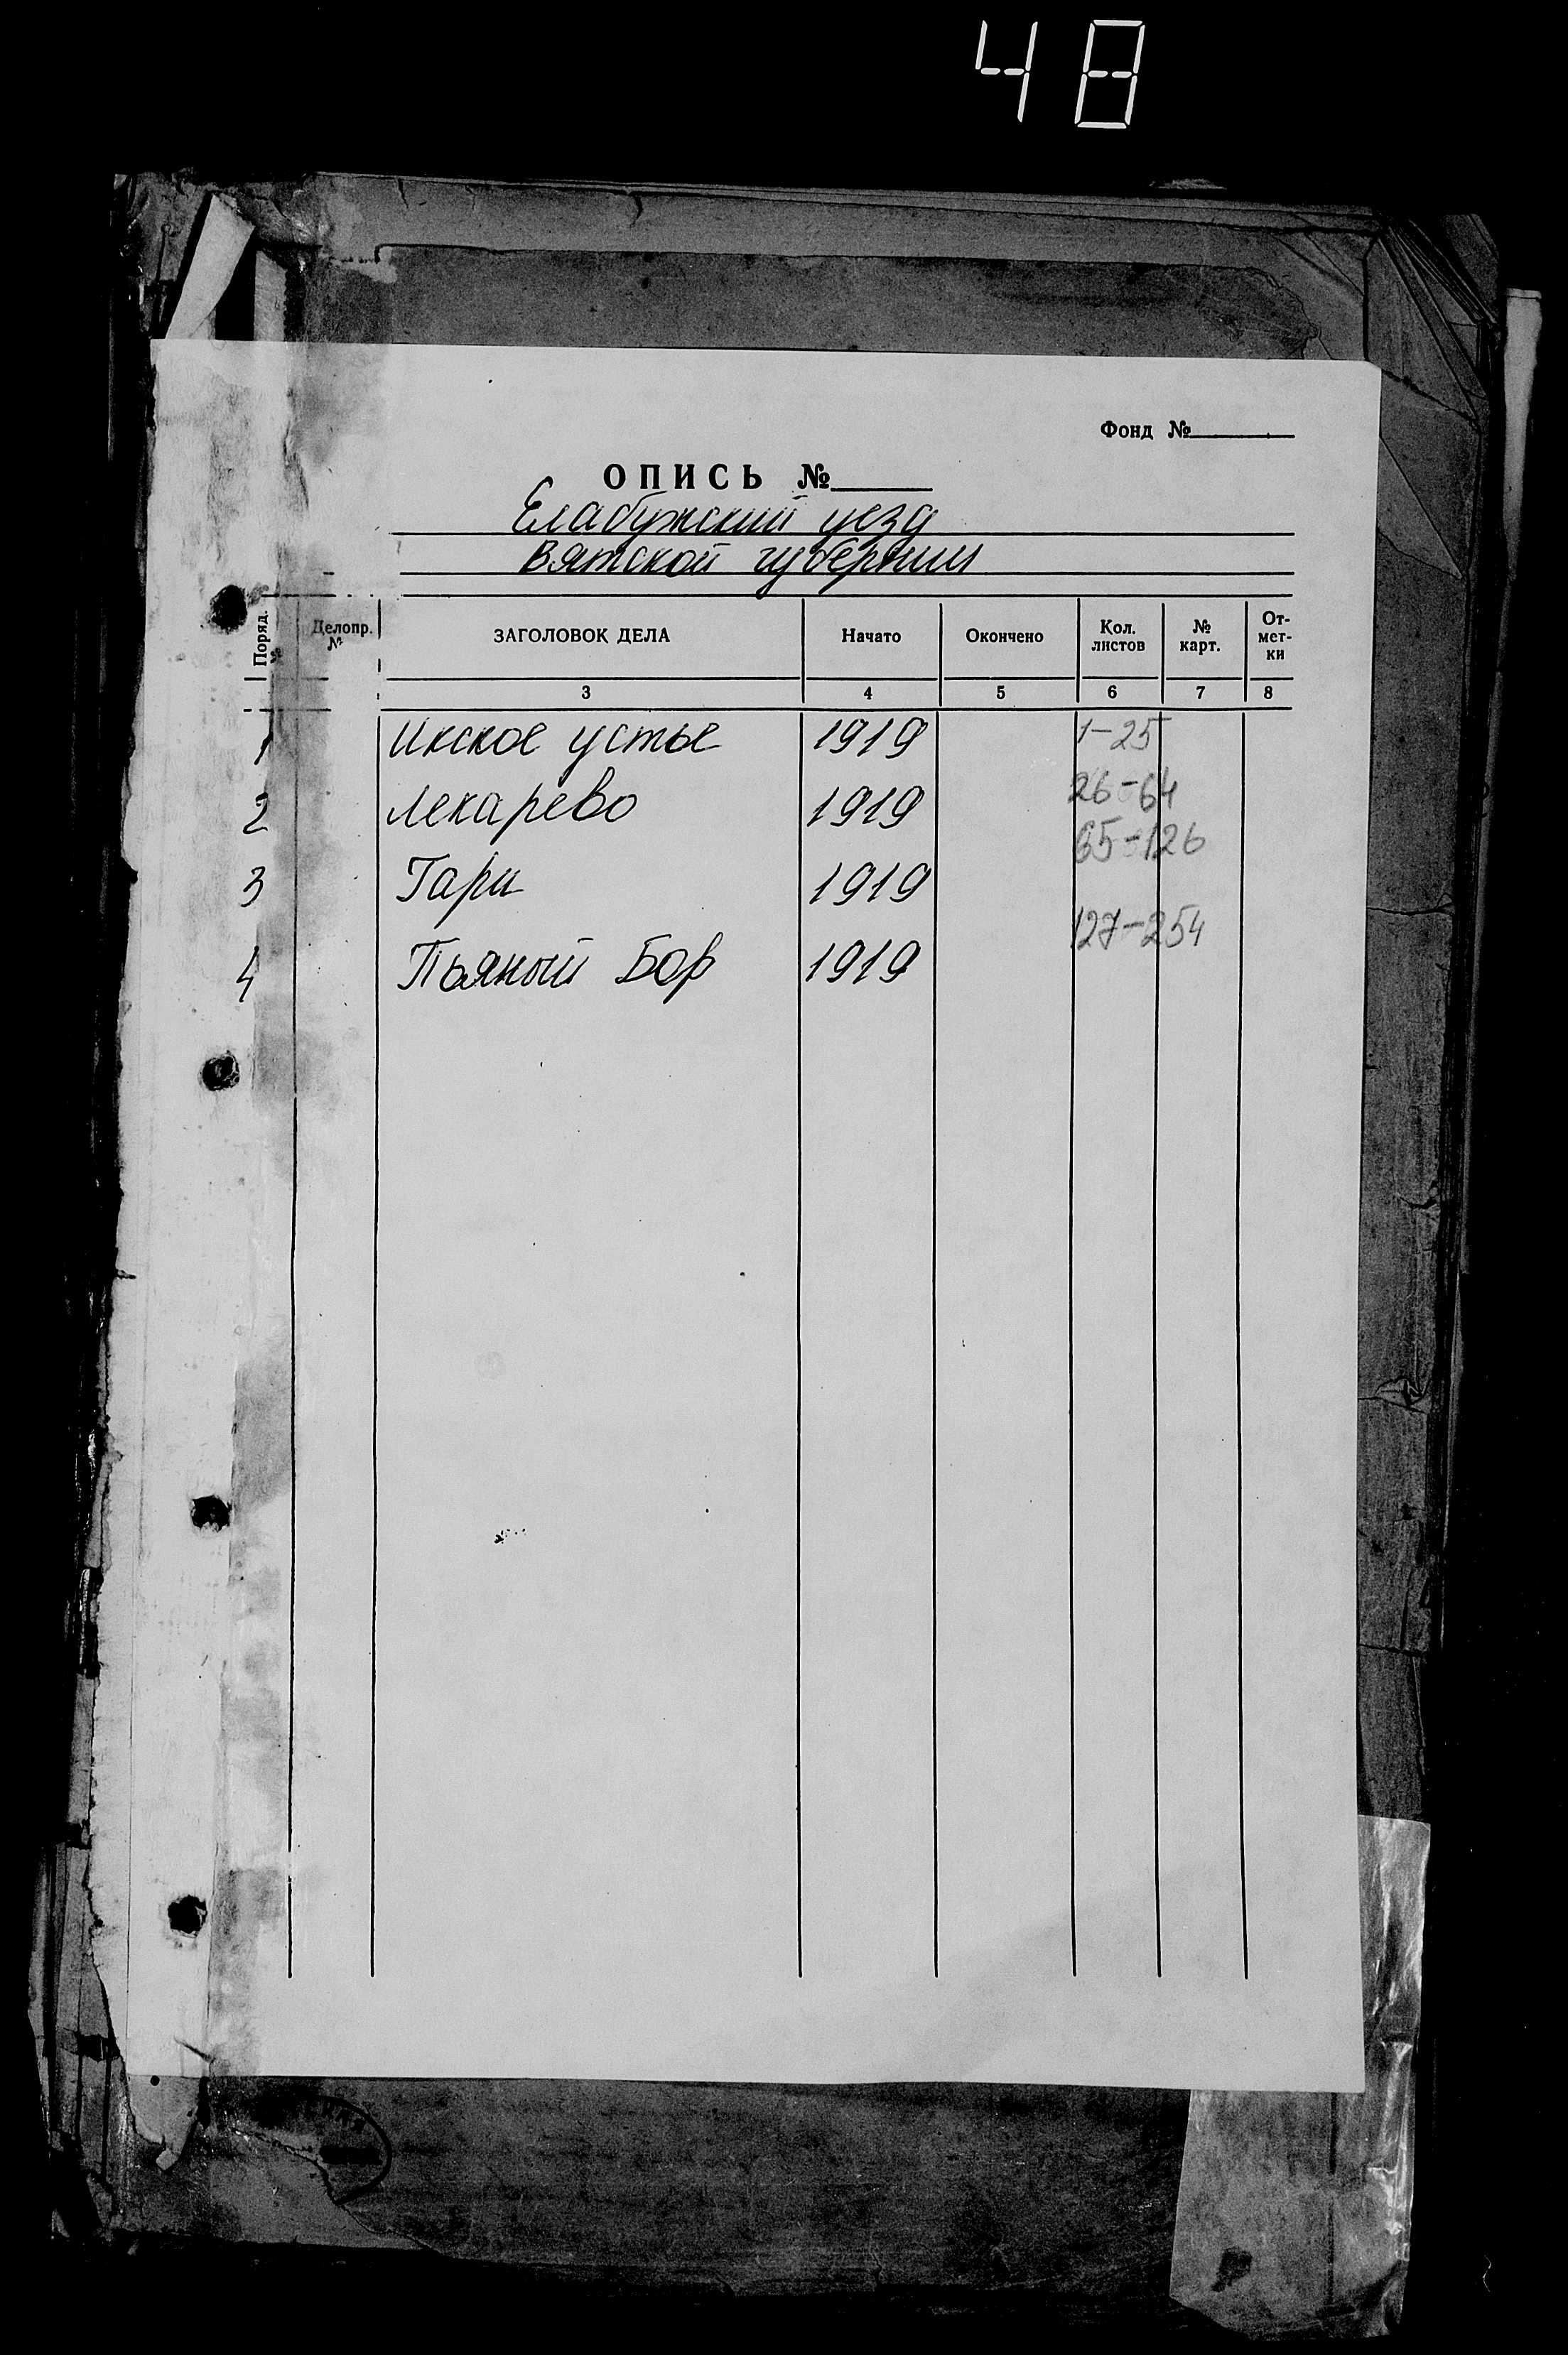 48
Фонд №
ОПИСЬ №
Елабужский уезд
Вятской губернии
Поряд. № Делопр. № ЗАГОЛОВОК ДЕЛА Начато Окончено Кол. листов № карт. От-мет-ки
3 4 5 6 7 8
1 Икское устье 1919 1-25
2 Лекарево 1919 26-64
3 Гари 1919 65-126
4 Пьяный Бор 1919 127-254